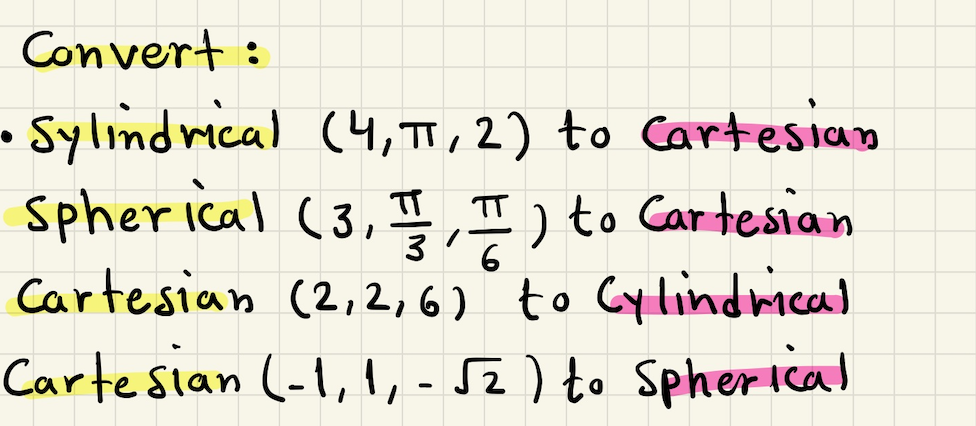 Convert :
• Sylindrical (4, π, 2) to Cartesian
Spherical (3, π/3, π/6) to Cartesian
Cartesian (2, 2, 6) to Cylindrical
Cartesian (-1, 1, - √2) to Spherical